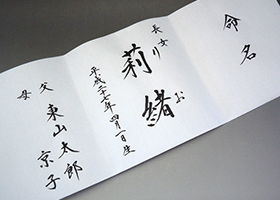 命名
長女
莉緒
りお
平成二十七年 四月一日生
父 東山太郎
母 京子